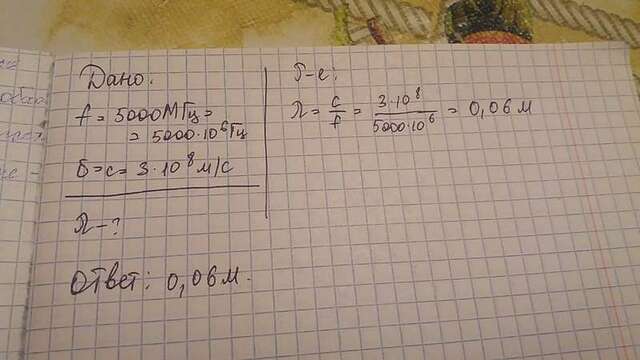 Дано:
f = 5000МГц =
= 5000·10⁶Гц
υ = c = 3·10⁸ м/с
λ - ?
Р-е:
λ = c/f = 3·10⁸/5000·10⁶ = 0,06 м
Ответ: 0,06 м.